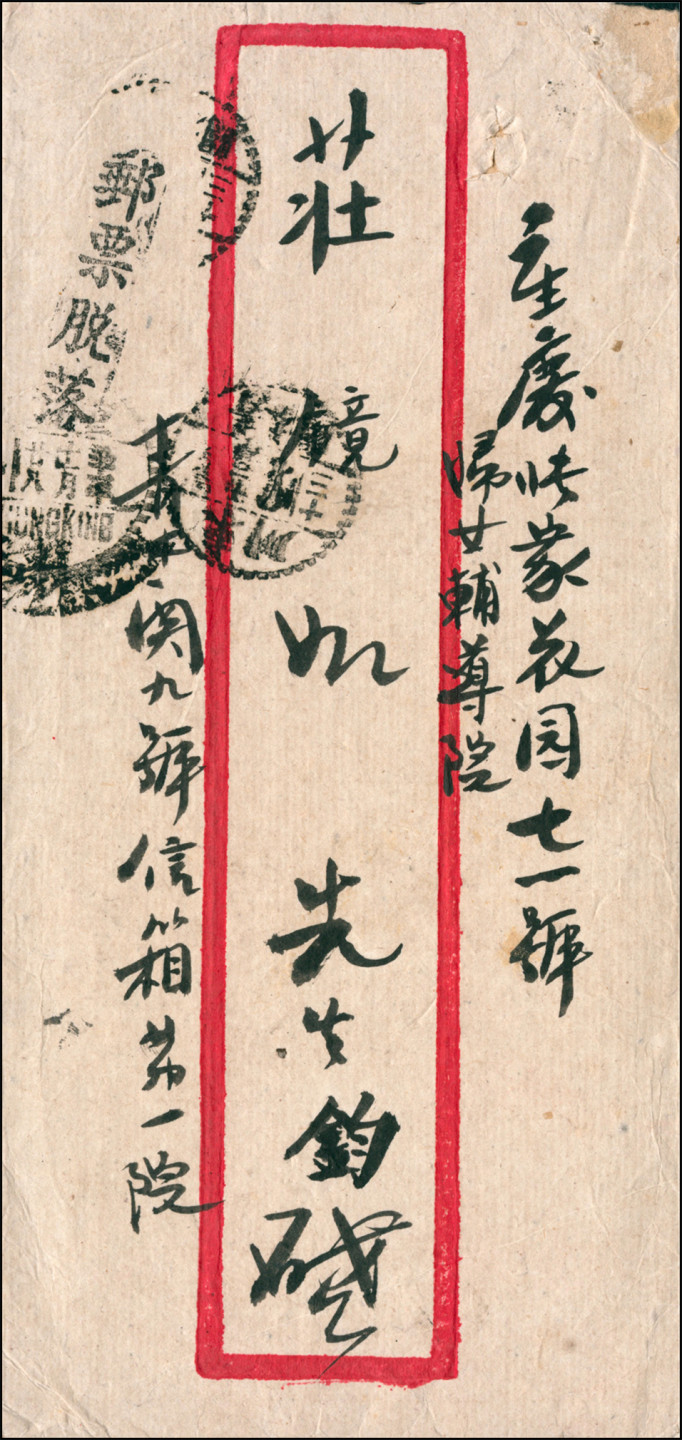 重慶張家花园七一號
婦女輔導院
莊鏡如先生鈞啟
青木関九號信箱第一院
郵票脫落
CHUNGKING